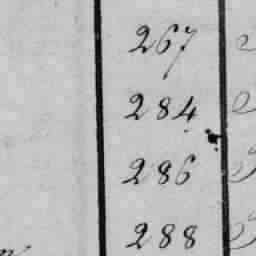 267
284
286
288